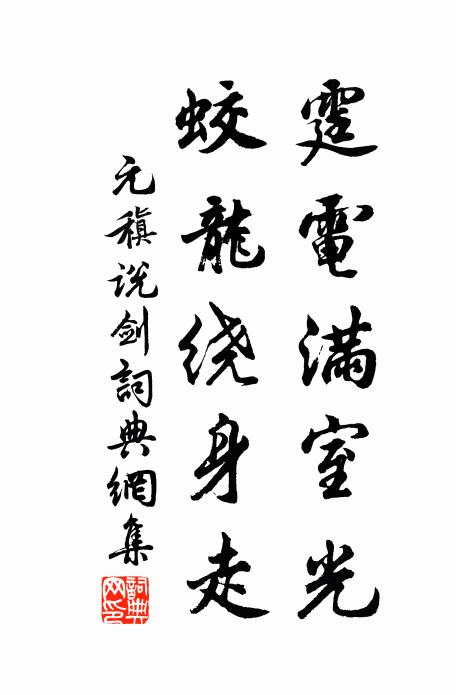 霆電滿室光
蛟龍绕身走
元稹说劍詞典網集
詞典网印